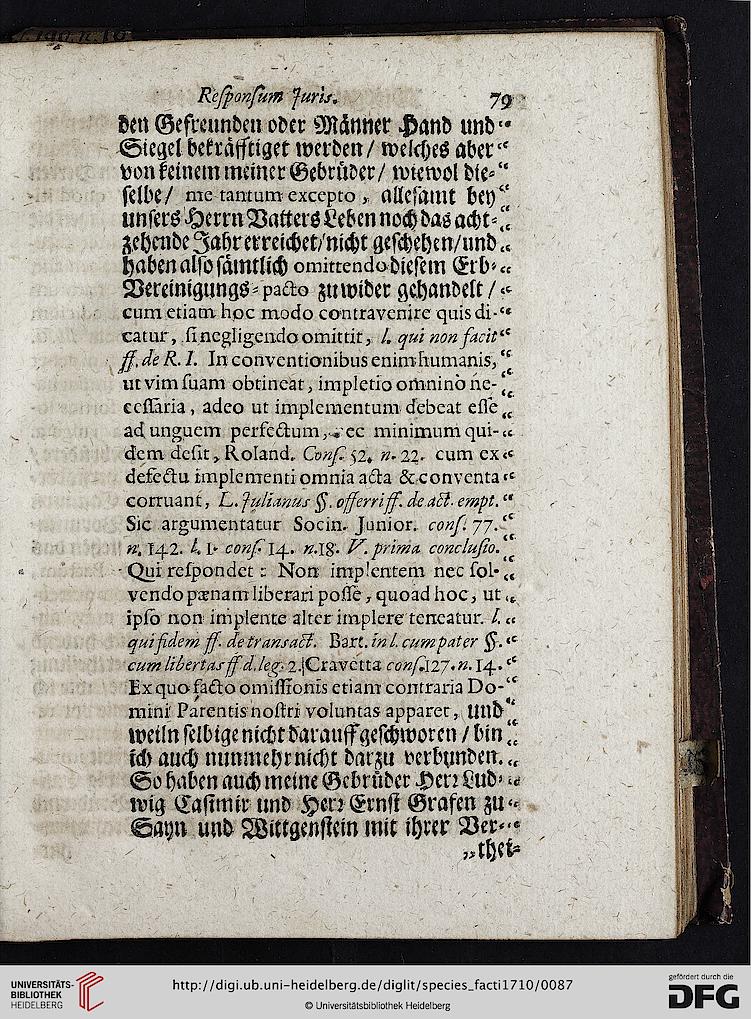 Reſponſum Juris. 79
den Gefreunden oder Männer Hand und “
Siegel bekräfftiget werden / welches aber “
von keinem meiner Gebrüder / wiewol die⸗ “
ſelbe / me tantum excepto, alleſamt bey “
unſers Herrn Vatters Leben noch das acht⸗ “
zehende Jahr erreichet / nicht geſchehen / und “
haben alſo ſämtlich omittendo dieſem Erb⸗ “
Vereinigungs⸗pacto zuwider gehandelt / “
cum etiam hoc modo contravenire quis di- “
catur, ſi negligendo omittit, l. qui non facit “
ff. de R. I. In conventionibus enim humanis, “
ut vim ſuam obtineat, impletio omninò ne- “
ceſſaria, adeo ut implementum debeat eſſe “
ad unguem perfectum, ec minimum qui- “
dem deſit, Roland. Conſ. 52. n. 22. cum ex “
defectu implementi omnia acta & conventa “
corruant, L. Julianus §. offerri ff. de act. empt. “
Sic argumentatur Socin. Junior. conſ. 77. “
n. 142. l. 1. conſ. 14. n. 18. V. prima concluſio. “
Qui reſpondet : Non implentem nec ſol- “
vendo pænam liberari poſſe, quoad hoc, ut “
ipſo non implente alter implere teneatur. l. “
qui fidem ff. de transact. Bart. in l. cum pater §. “
cum libertas ff d. leg. 2. Cravetta conſ. 127. n. 14. “
Ex quo facto omiſſionis etiam contraria Do- “
mini Parentis noſtri voluntas apparet, und “
weiln ſelbige nicht darauff geſchworen / bin “
ich auch nunmehr nicht darzu verbunden. “
So haben auch meine Gebrüder Herr Lud⸗ “
wig Caſimir und Herr Ernſt Grafen zu “
Sayn und Wittgenſtein mit ihrer Ver⸗ “
„ thei⸗
UNIVERSITÄTS-
BIBLIOTHEK
HEIDELBERG
http://digi.ub.uni-heidelberg.de/diglit/species_facti1710/0087
© Universitätsbibliothek Heidelberg
gefördert durch die
DFG